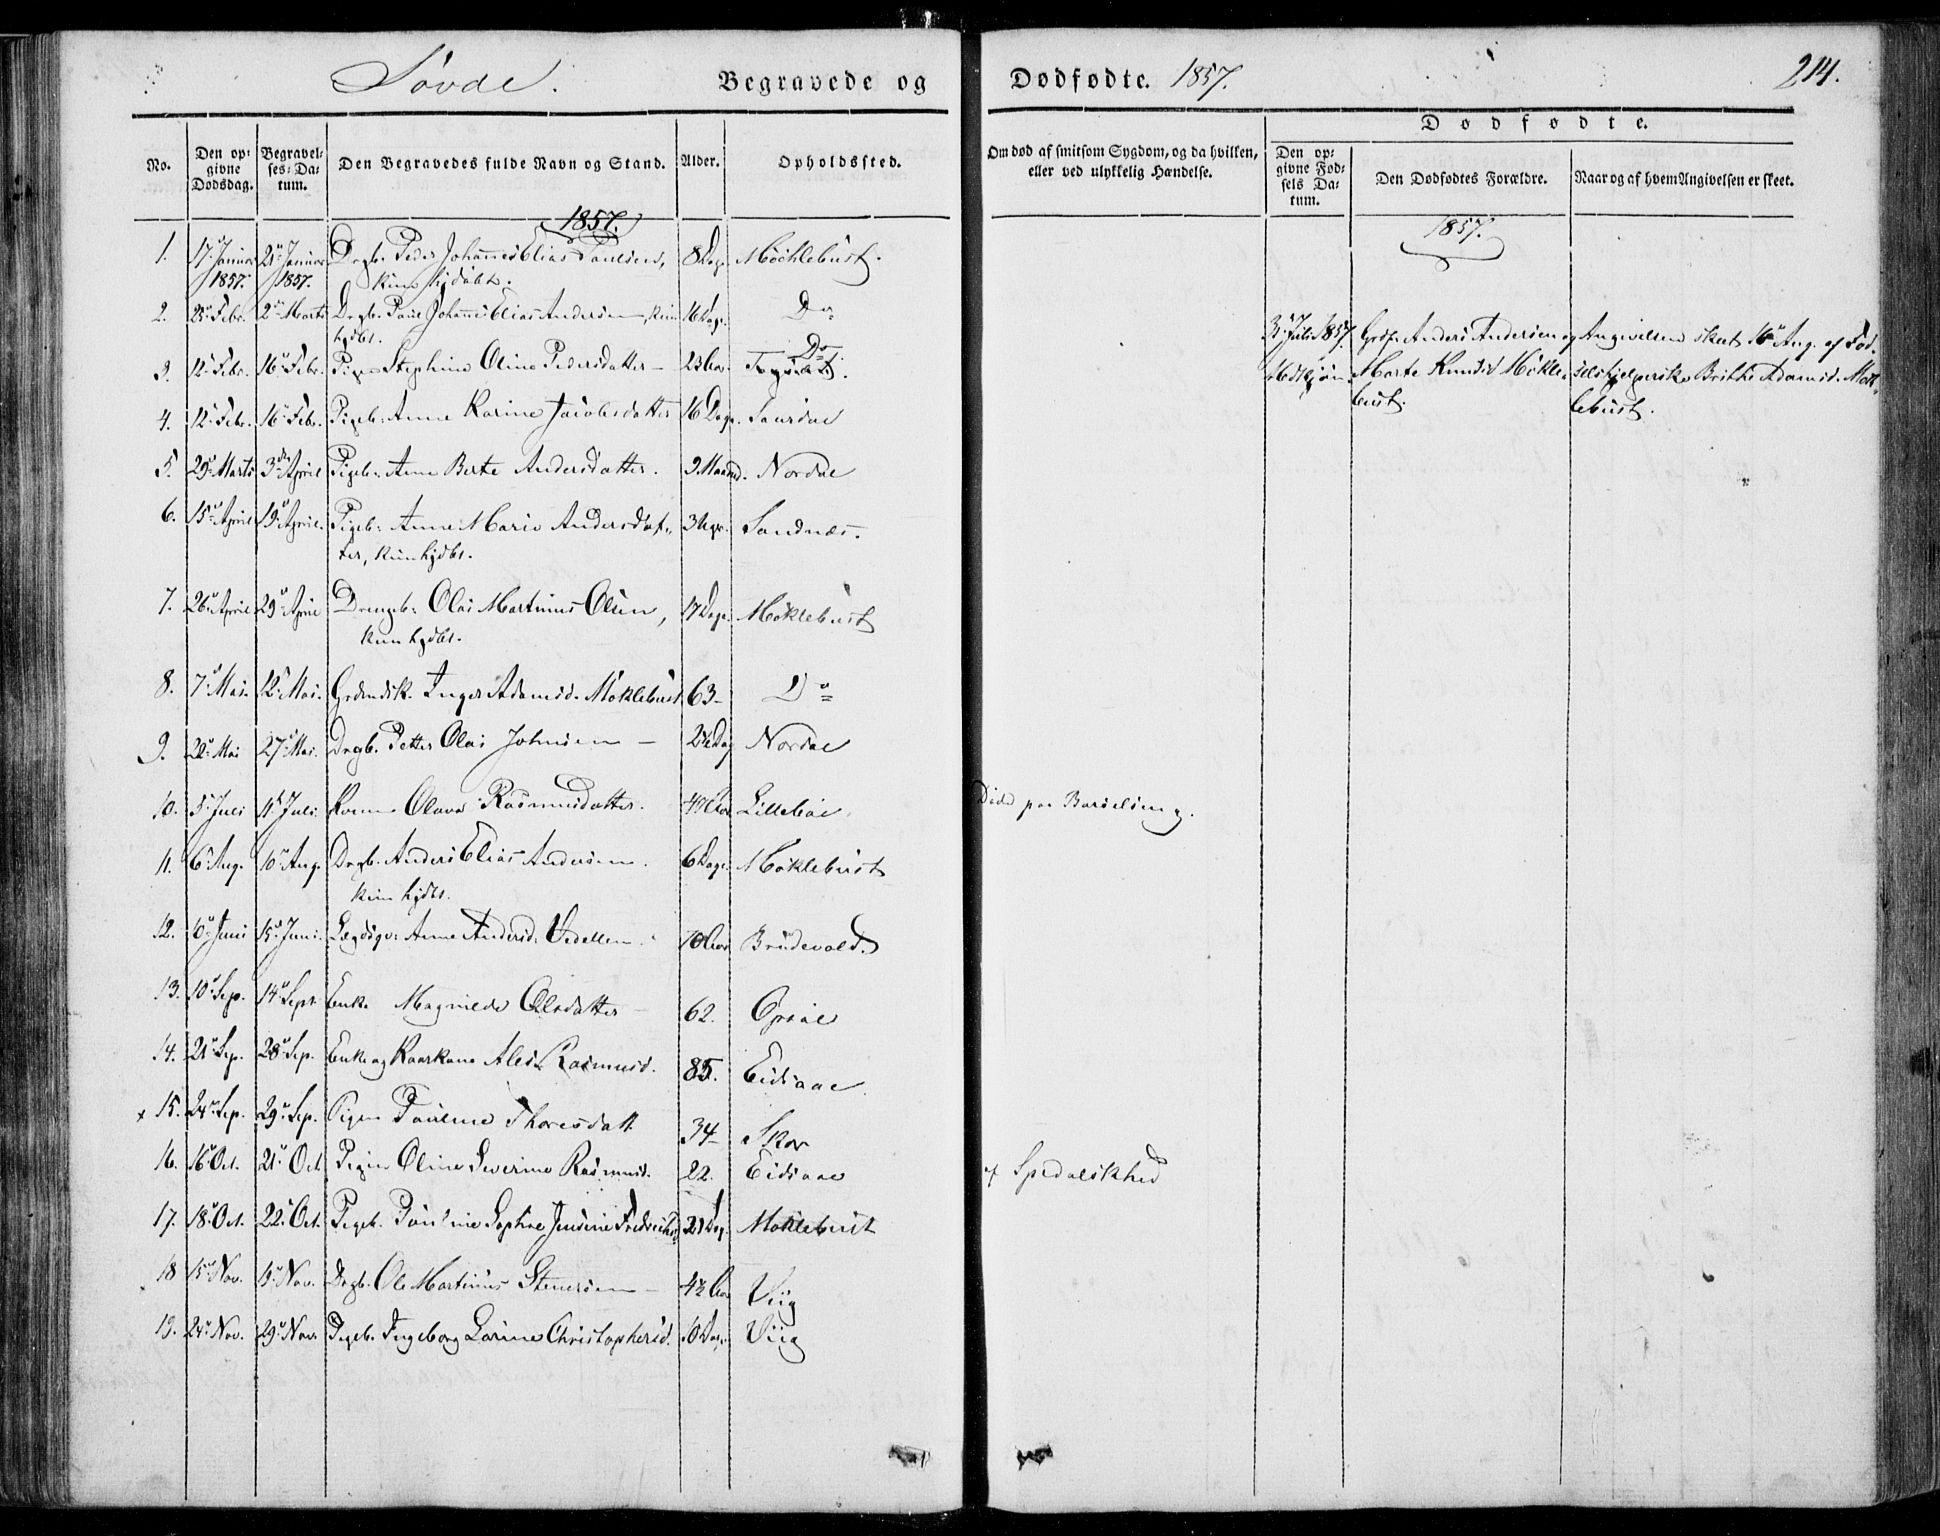 Søvde. Begravede og Dødfødte. 1857. 214.
No. Den opgivne Dødsdag. Begravelses-Datum. Den Begravedes fulde Navn og Stand. Alder. Opholdssted. Om død af smitsom Sygdom, og da hvilken, eller ved ulykkelig Hændelse.
Dødfødte.
Den opgivne Fødsels Datum. Den Dødfødtes Forældre. Naar og af hvem Angivelsen er skeet.
1857.
1. 17 Januar 1857. 21 Januar 1857. Drgb. Peder Johannes Elias Paulsen, 8 Dage Möcklebust.
kun hjdöbt.
2. 25 Febr. 2 Marts Drgb. Paul Johannes Elias Andersen, kun 16 Dage Do
hjdbt.
3. 12 Febr. 16 Febr. Pigen Stephine Oline Pedersdatter 23 Aar Do
4. 12 Febr. 16 Febr. Pigeb. Anne Karine Jacobsdatter 16 Dage Saurdal
5. 29 Marts 3 April Pigeb. Anne Berte Andersdatter. 9 Maaned. Nordal
6. 15 April 19 April. Pigeb. Anne Marie Andersdat-
ter, kun hjdbt. Sandnæs.
7. 26 April 29 April Drengeb. Olai Martinus Olsen, 17 Dage Möklebust
kun hjdbt.
8. 7 Mai. 12 Mai. Inger Adamsd. Möklebust 63 Do
9. Mai 27 Mai. Drgb. Petter Olai Johnsen Nordal
10. 5 Juli 11 Juli. Kone Olava Rasmusdatter. Lilleböe Död paa Barselseng.
11. 6 Aug. 10 Aug. Drgb. Anders Elias Andersen. 6 Dage Möklebust
kun hjdbt.
12. 10 Juni 15 Juni. Anne Andersd. Vedellem. 70 Aar Brudevold.
13. 10 Sep. 14 Sept. Enke Magnilde Olsdatter 62. Opsal
14. 21 Sep. 28 Sep. Enke og Kaarkone Ales Rasmusd. 85. Eidsaae
15. 24 Sep. 29 Sep. Pigen Pauline Thoresdatt 34 Skor
16. 16 Oct. 21 Oct. Pigen Oline Severine Rasmusd. 22. Eidsaae af Spedalskhed
17. 18 Oct. 22 Oct. Pigeb. Pauline Sophie Jensine Fredriksd. 21 Dag. Möklebust
18 15 Nov. 19 Nov. Drgb. Ole Martinus Stenersen 4½ Aar Viig
19. 24 Nov. 29 Nov. Pigeb. Ingeborg Lovine Christophersd. 10 Dage Viig
1857.
31 Juli 1857. Grdf. Anders Andersen og Angivelsen skeet 16 Aug. af Föd-
Marte Knudsd Mökle- selshjelperske Brithe Adamsd. Mök-
bust. lebust.